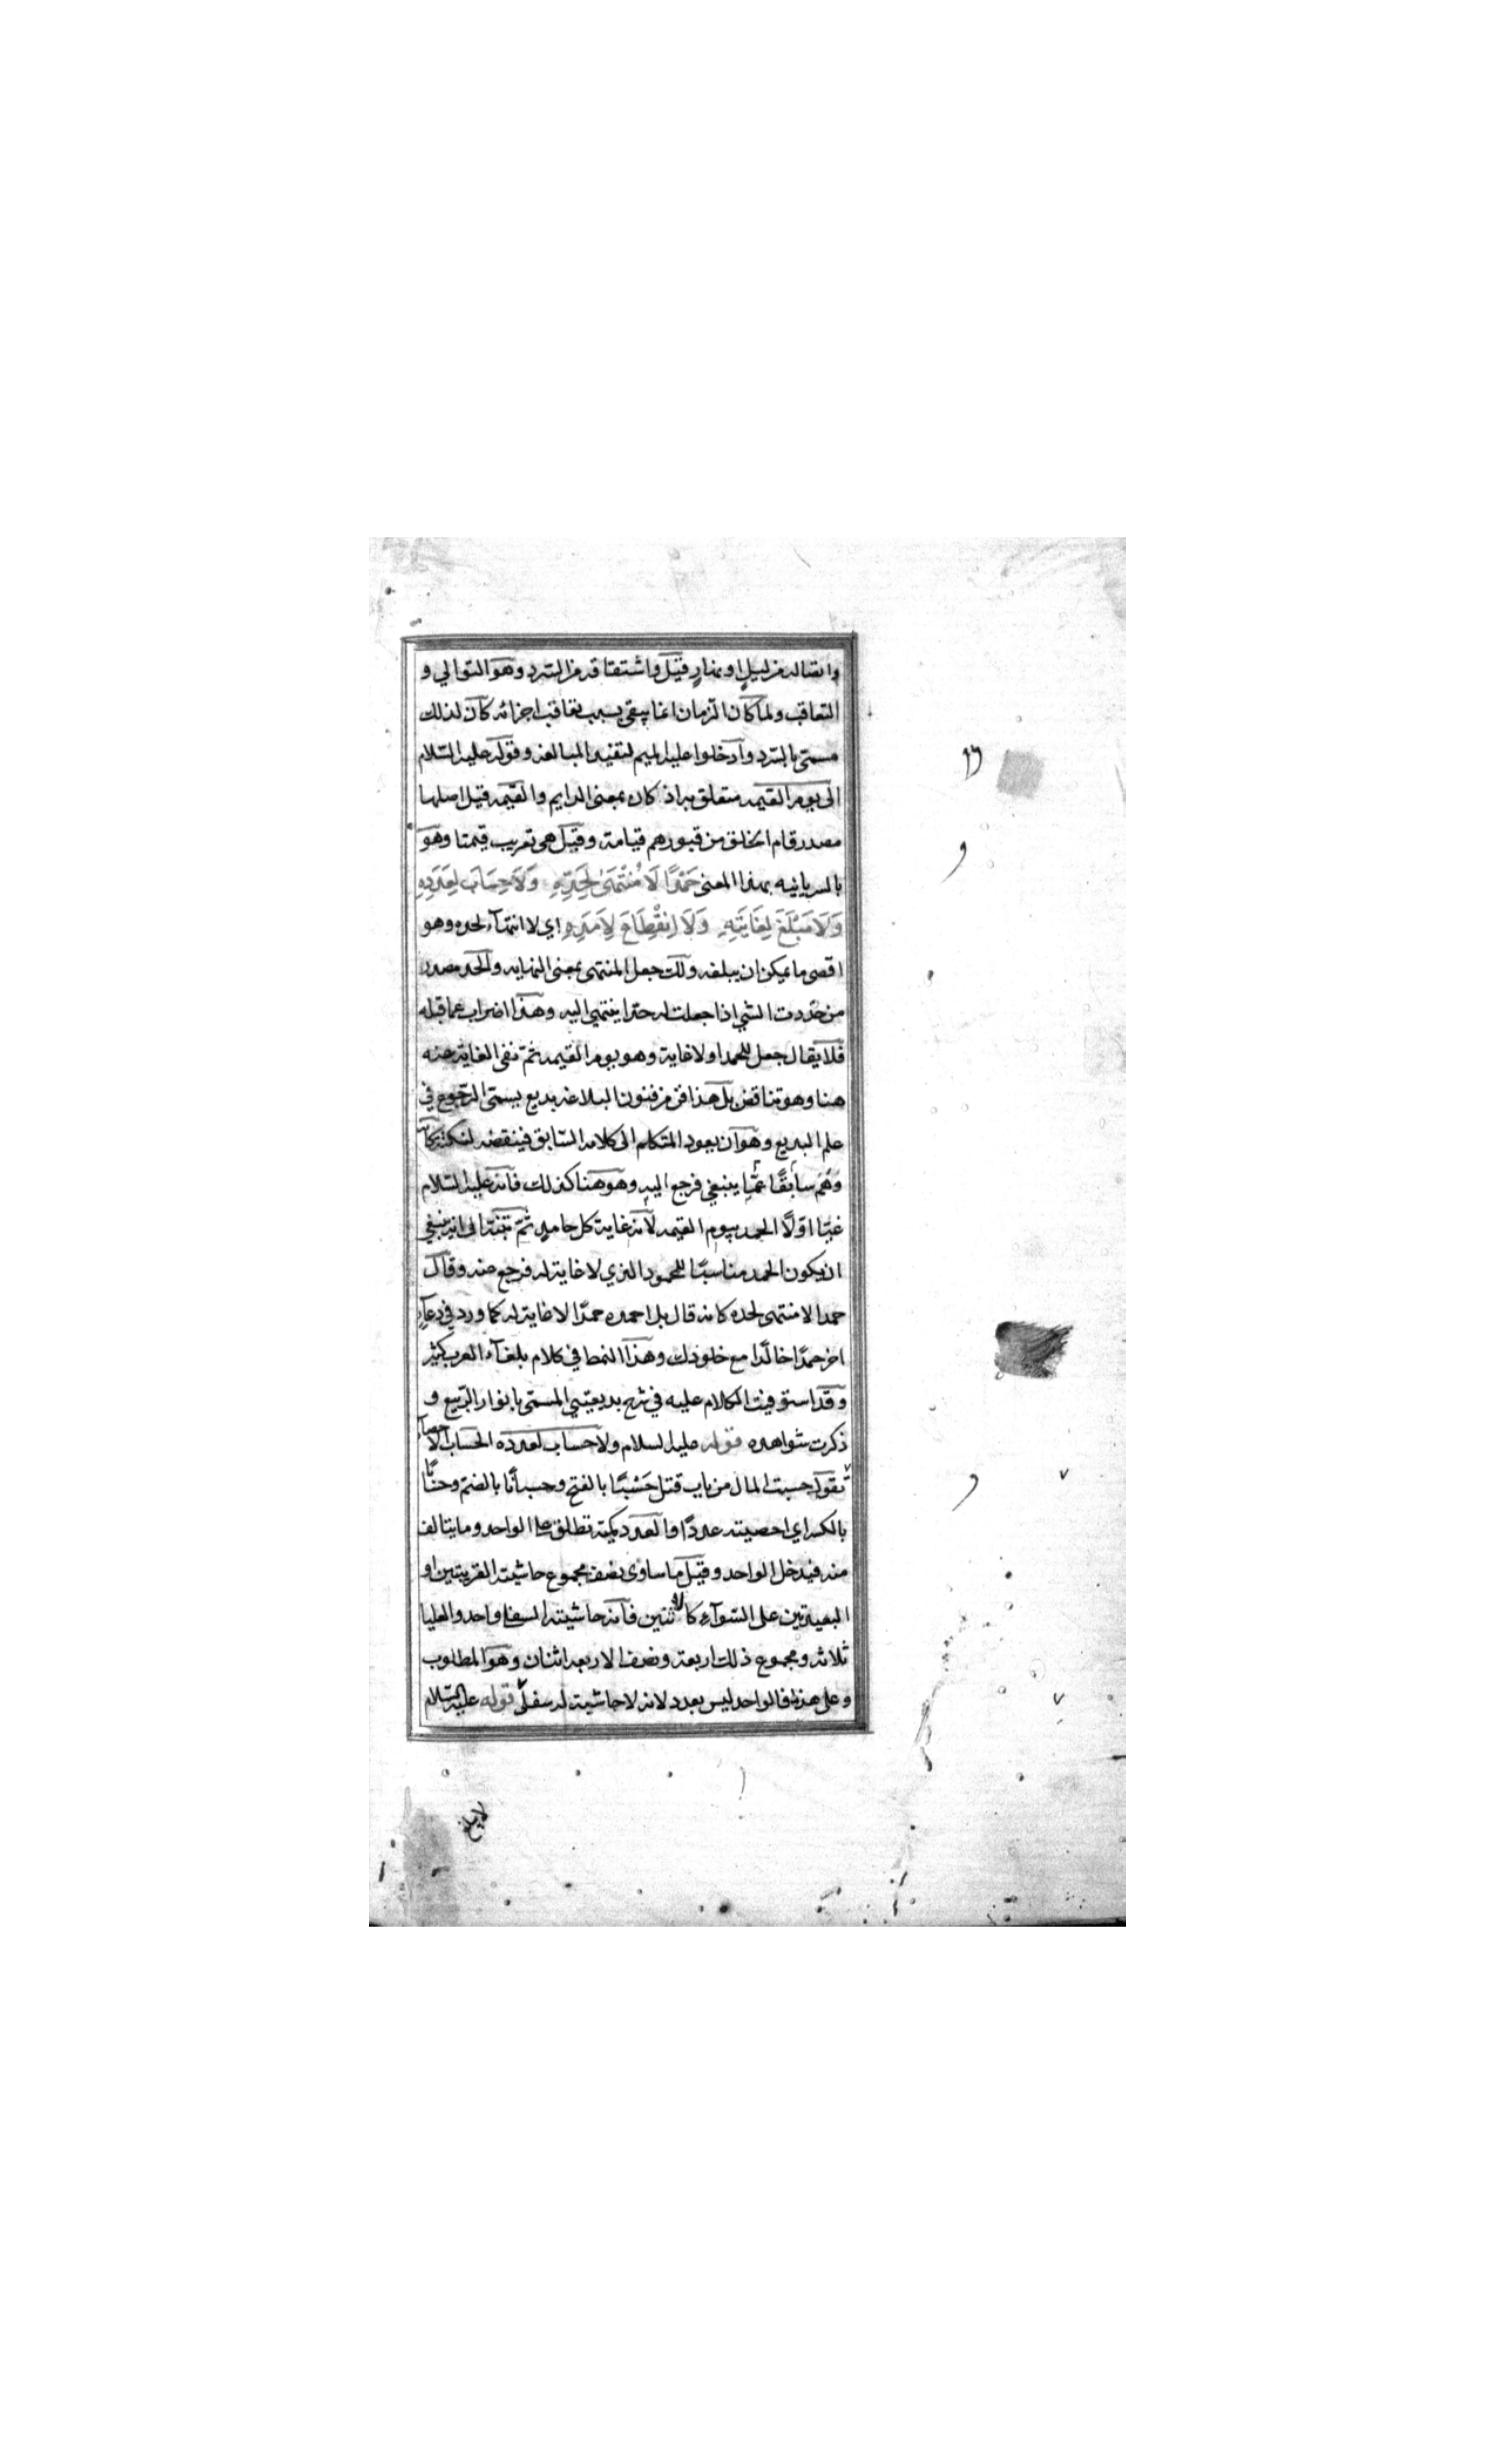 واتصاله من ليل او نهار قيل واشتقاقه من السرد وهو التوالي و
التعاقب ولما كان الزمان انما يبقى بسبب تعاقب اجزائه كان لذلك
مسمى بالسرد وادخلوا عليه الميم لتفيد المبالغه وقوله عليه السلام
الى يوم القيمه متعلق به اذ كان بمعنى الدايم والقيمه قيل اصلها
مصدر قام الخلق من قبورهم قيامة وقيل هي تعريب قيمتا وهو
بالسريانيه بهذا المعنى حَمْدًا لَا مُنْتَهىٰ لِحَدِّهِ وَلَا حِسَابَ لِعَدَدِهِ
وَلَا مَبْلَغَ لِغَايَتِهِ وَلَا انْقِطَاعَ لِاَمَدِهِ اي لا انتهآء لحده وهو
اقصى ما يمكن ان يبلغه ولك جعل المنتهى بمعنى النهايه والحد مصدر
من حددت الشي اذا جعلت له حدا ينتهي اليه وهذا اضراب عما قبله
فلا يقال جعل للحمد اولا غاية وهو يوم القيمه ثم نفى الغاية عنه
هنا وهو تناقض بل هذا فن من فنون البلاغه بديع يسمى الرجوع في
علم البديع وهو ان يعود المتكلم الى كلامه السابق فينقضه لنكتة كأنه
وهم سابقًا عمّا ينبغي فرجع اليه وهو هنا كذلك فانه عليه السلام
غيّا اوّلًا الحمد بيوم القيمه لانه غاية كل حامد ثم تنبّه الى انه ينبغي
ان يكون الحمد مناسبًا للمحمود الذي لا غاية له فرجع عنه وقال
حمدا لا منتهى لحده كانه قال بل احمده حمدًا لا غاية له كما ورد في دعآء
اخر حمدًا خالدًا مع خلودك وهذا النمط في كلام بلغآء العرب كثير
وقد استوفيت الكلام عليه في شرح بديعيتي المسمى بانوار الربيع و
ذكرت شواهده قوله عليه السلام ولا حساب لعدده الحساب الاحصآء
تقول حسبت المال من باب قتل حَسْبًا بالفتح وحسبانًا بالضم وحسابًا
بالكسر اي احصيته عددًا والعدد كمية تطلق على الواحد وما يتالف
منه فيدخل الواحد وقيل ما ساوى نصف مجموع حاشيته القريبتين او
البعيدتين على السوآء كالاثنين فانه حاشيته السفلى واحد والعليا
ثلاثه ومجموع ذلك اربعة ونصف الاربعه اثنان وهو المطلوب
وعلى هذا فالواحد ليس بعدد لانه لا حاشية له سفلى قوله عليه السلام